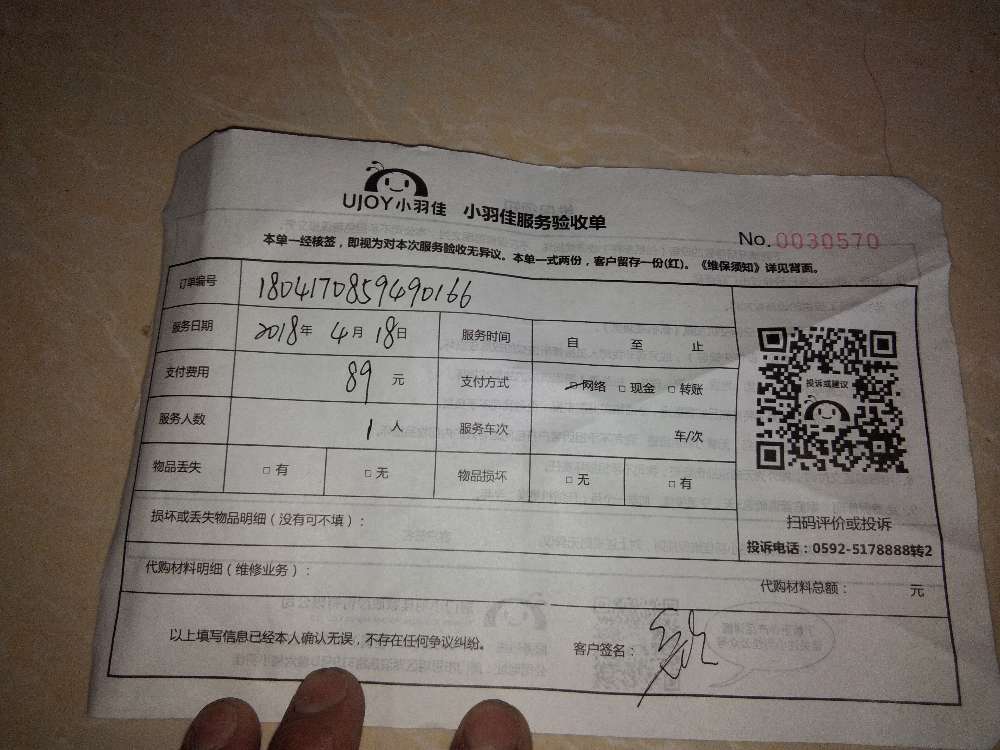 UJOY小羽佳 小羽佳服务验收单
No.0030570
本单一经核签，即视为对本次服务验收无异议。本单一式两份，客户留存一份(红)。《维保须知》详见背面。
订单编号 1804170859490166
服务日期 2018年 4月 18日 服务时间 自 至 止
支付费用 89 元 支付方式 □网络 □现金 □转账
投诉或建议
服务人数 1 人 服务车次 车/次
物品丢失 □有 □无 物品损坏 □无 □有
扫码评价或投诉
损坏或丢失物品明细（没有可不填）：
投诉电话：0592-5178888转2
代购材料明细（维修业务）： 代购材料总额： 元
以上填写信息已经本人确认无误，不存在任何争议纠纷。 客户签名：